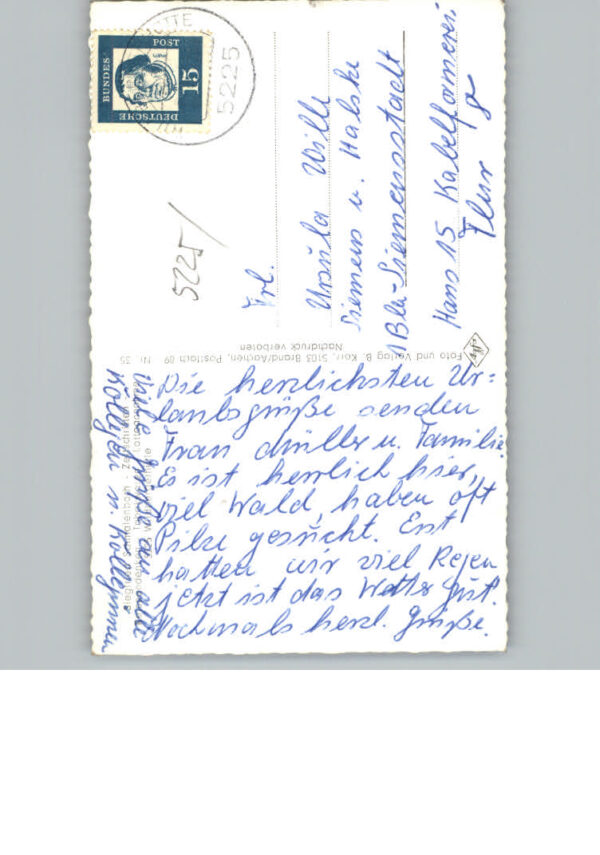 DEUTSCHE
BUNDES
POST
15
5225
5225/
Frl.
Ursula Wille
Siemens u. Halske
1 Bln-Siemensstadt
Haus 15 Kabelformerei
Flur g
Foto und Verlag B. Korr, 5103 Brand/Aachen, Postfach 89 Nr. 35
Nachdruck verboten
Die herzlichsten Ur=
laubsgrüße senden
Frau Müller u. Familie
Es ist herrlich hier,
viel Wald, haben oft
Pilze gesucht. Erst
hatten wir viel Regen
jetzt ist das Wetter gut.
Nochmals herzl. Grüße.
Viele Grüße an alle
Kollegen u. Kolleginnen